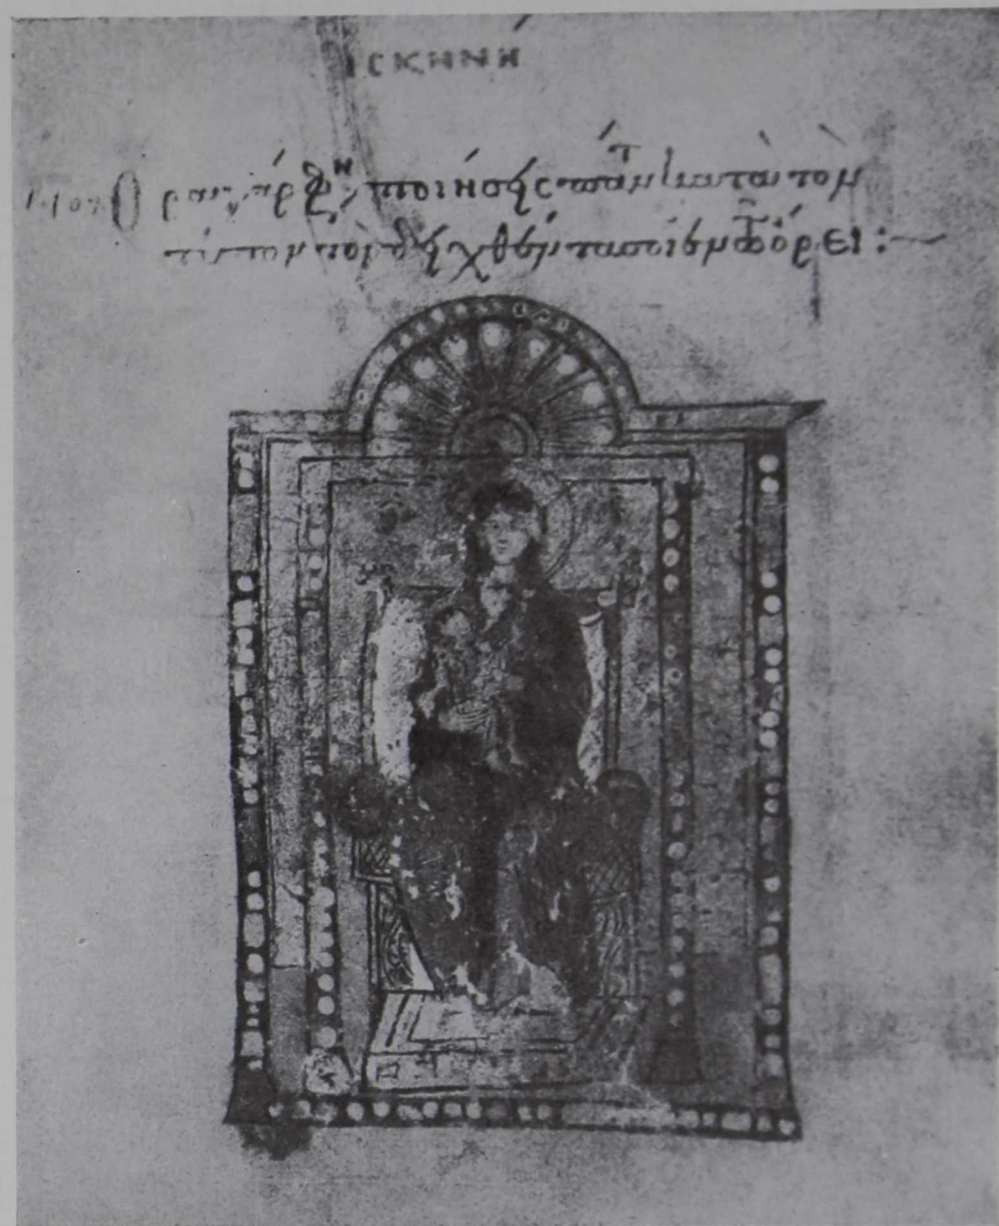 σκηνή
Ὅρα γάρ φη ποιήσεις πάντα κατὰ τὸν
τύπον τὸν δειχθέντα σοι ἐν τῷ ὄρει :